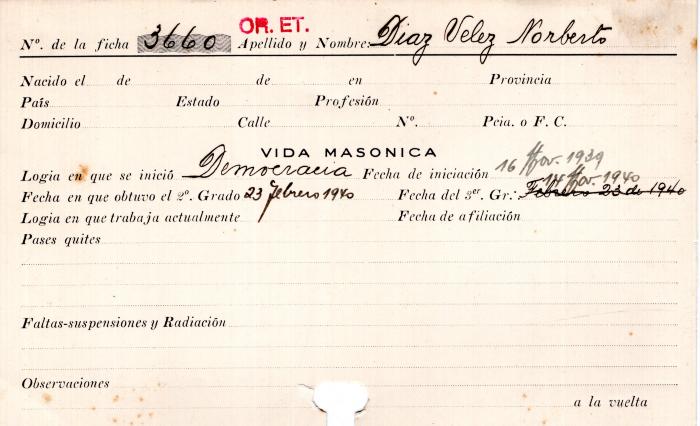 OR. ET.
Nº. de la ficha 3660 Apellido y Nombre: Diaz Velez Norberto
Nacido el de de en Provincia
País Estado Profesión
Domicilio Calle Nº. Pcia. o F. C.
VIDA MASONICA
Logia en que se inició Democracia Fecha de iniciación 16 Nov. 1939
14 Nov. 1940
Fecha en que obtuvo el 2º. Grado 23 febrero 1940 Fecha del 3er. Gr.: Febrero 23 de 1940
Logia en que trabaja actualmente Fecha de afiliación
Pases quites
Faltas-suspensiones y Radiación
Observaciones
a la vuelta